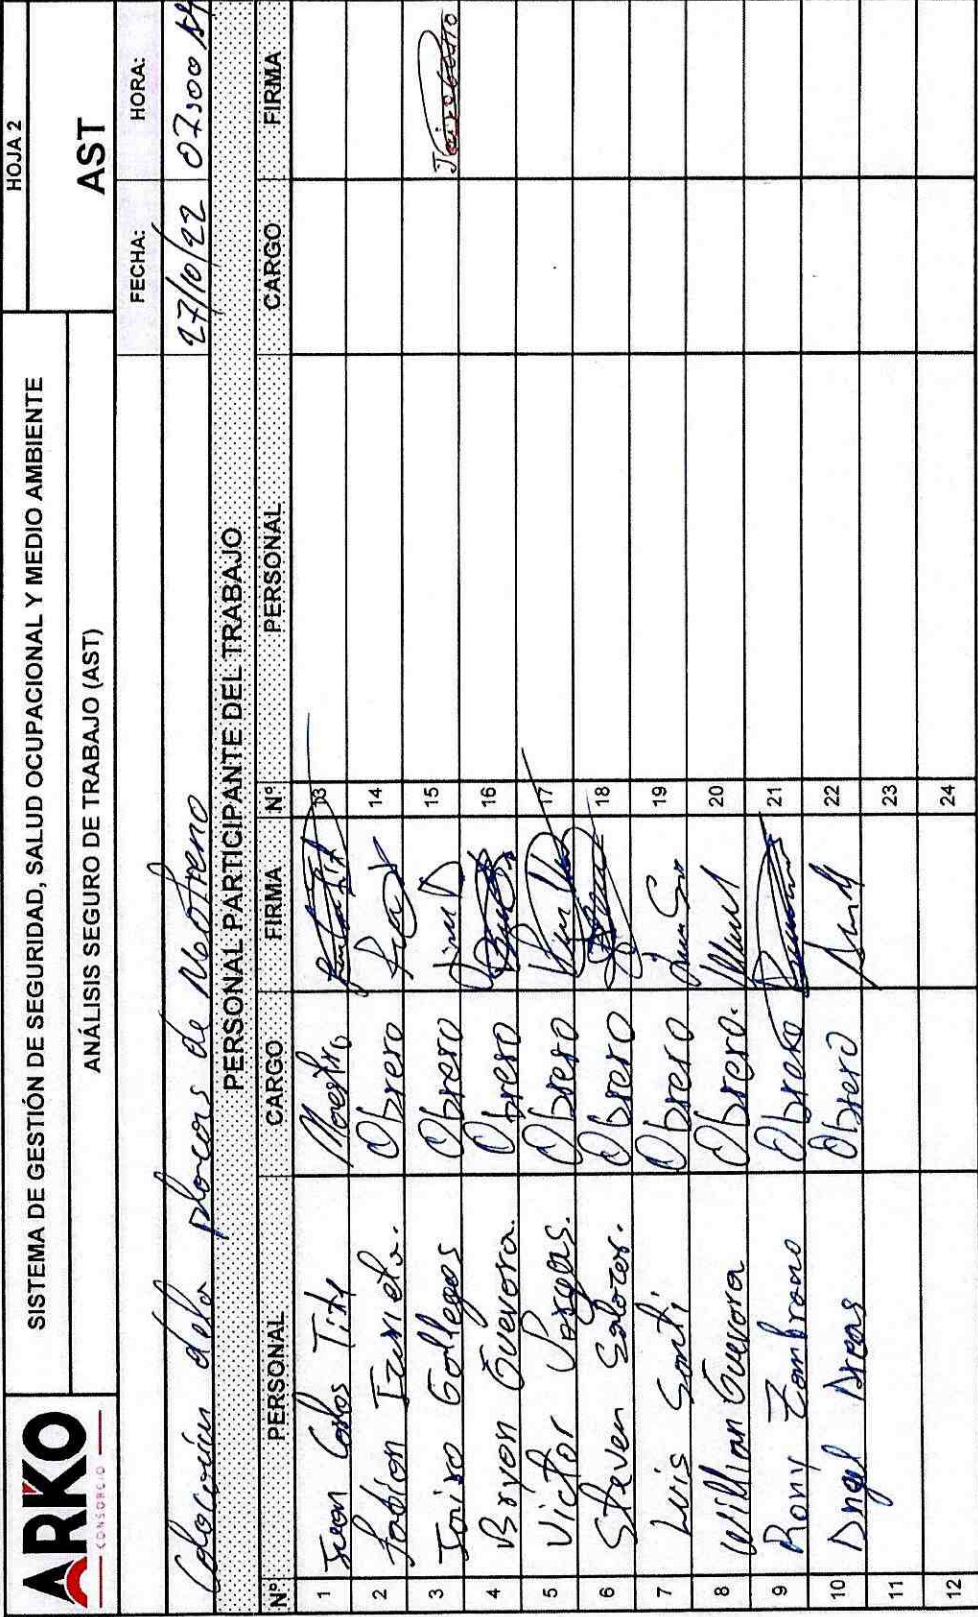 ARKO
CONSORCIO
SISTEMA DE GESTIÓN DE SEGURIDAD, SALUD OCUPACIONAL Y MEDIO AMBIENTE
HOJA 2
ANÁLISIS SEGURO DE TRABAJO (AST)
AST
FECHA: HORA:
Colocación dela placas de
27/10/22 07:00
PERSONAL PARTICIPANTE DEL TRABAJO
Nº PERSONAL CARGO FIRMA Nº PERSONAL CARGO FIRMA
1 Juan Carlos Tito Maestro 13
2 Fabion Obrero 14
3 Jairo Gallegos Obrero 15
4 Bryon Guevara. Obrero 16
5 Victor Vargas. Obrero 17
6 Steven Salazar. Obrero 18
7 Luis Santi Obrero 19
8 Willian Guevara Obrero. 20
9 Rony Zambrano Obrero 21
10 Angel Arcos Obrero 22
11 23
12 24